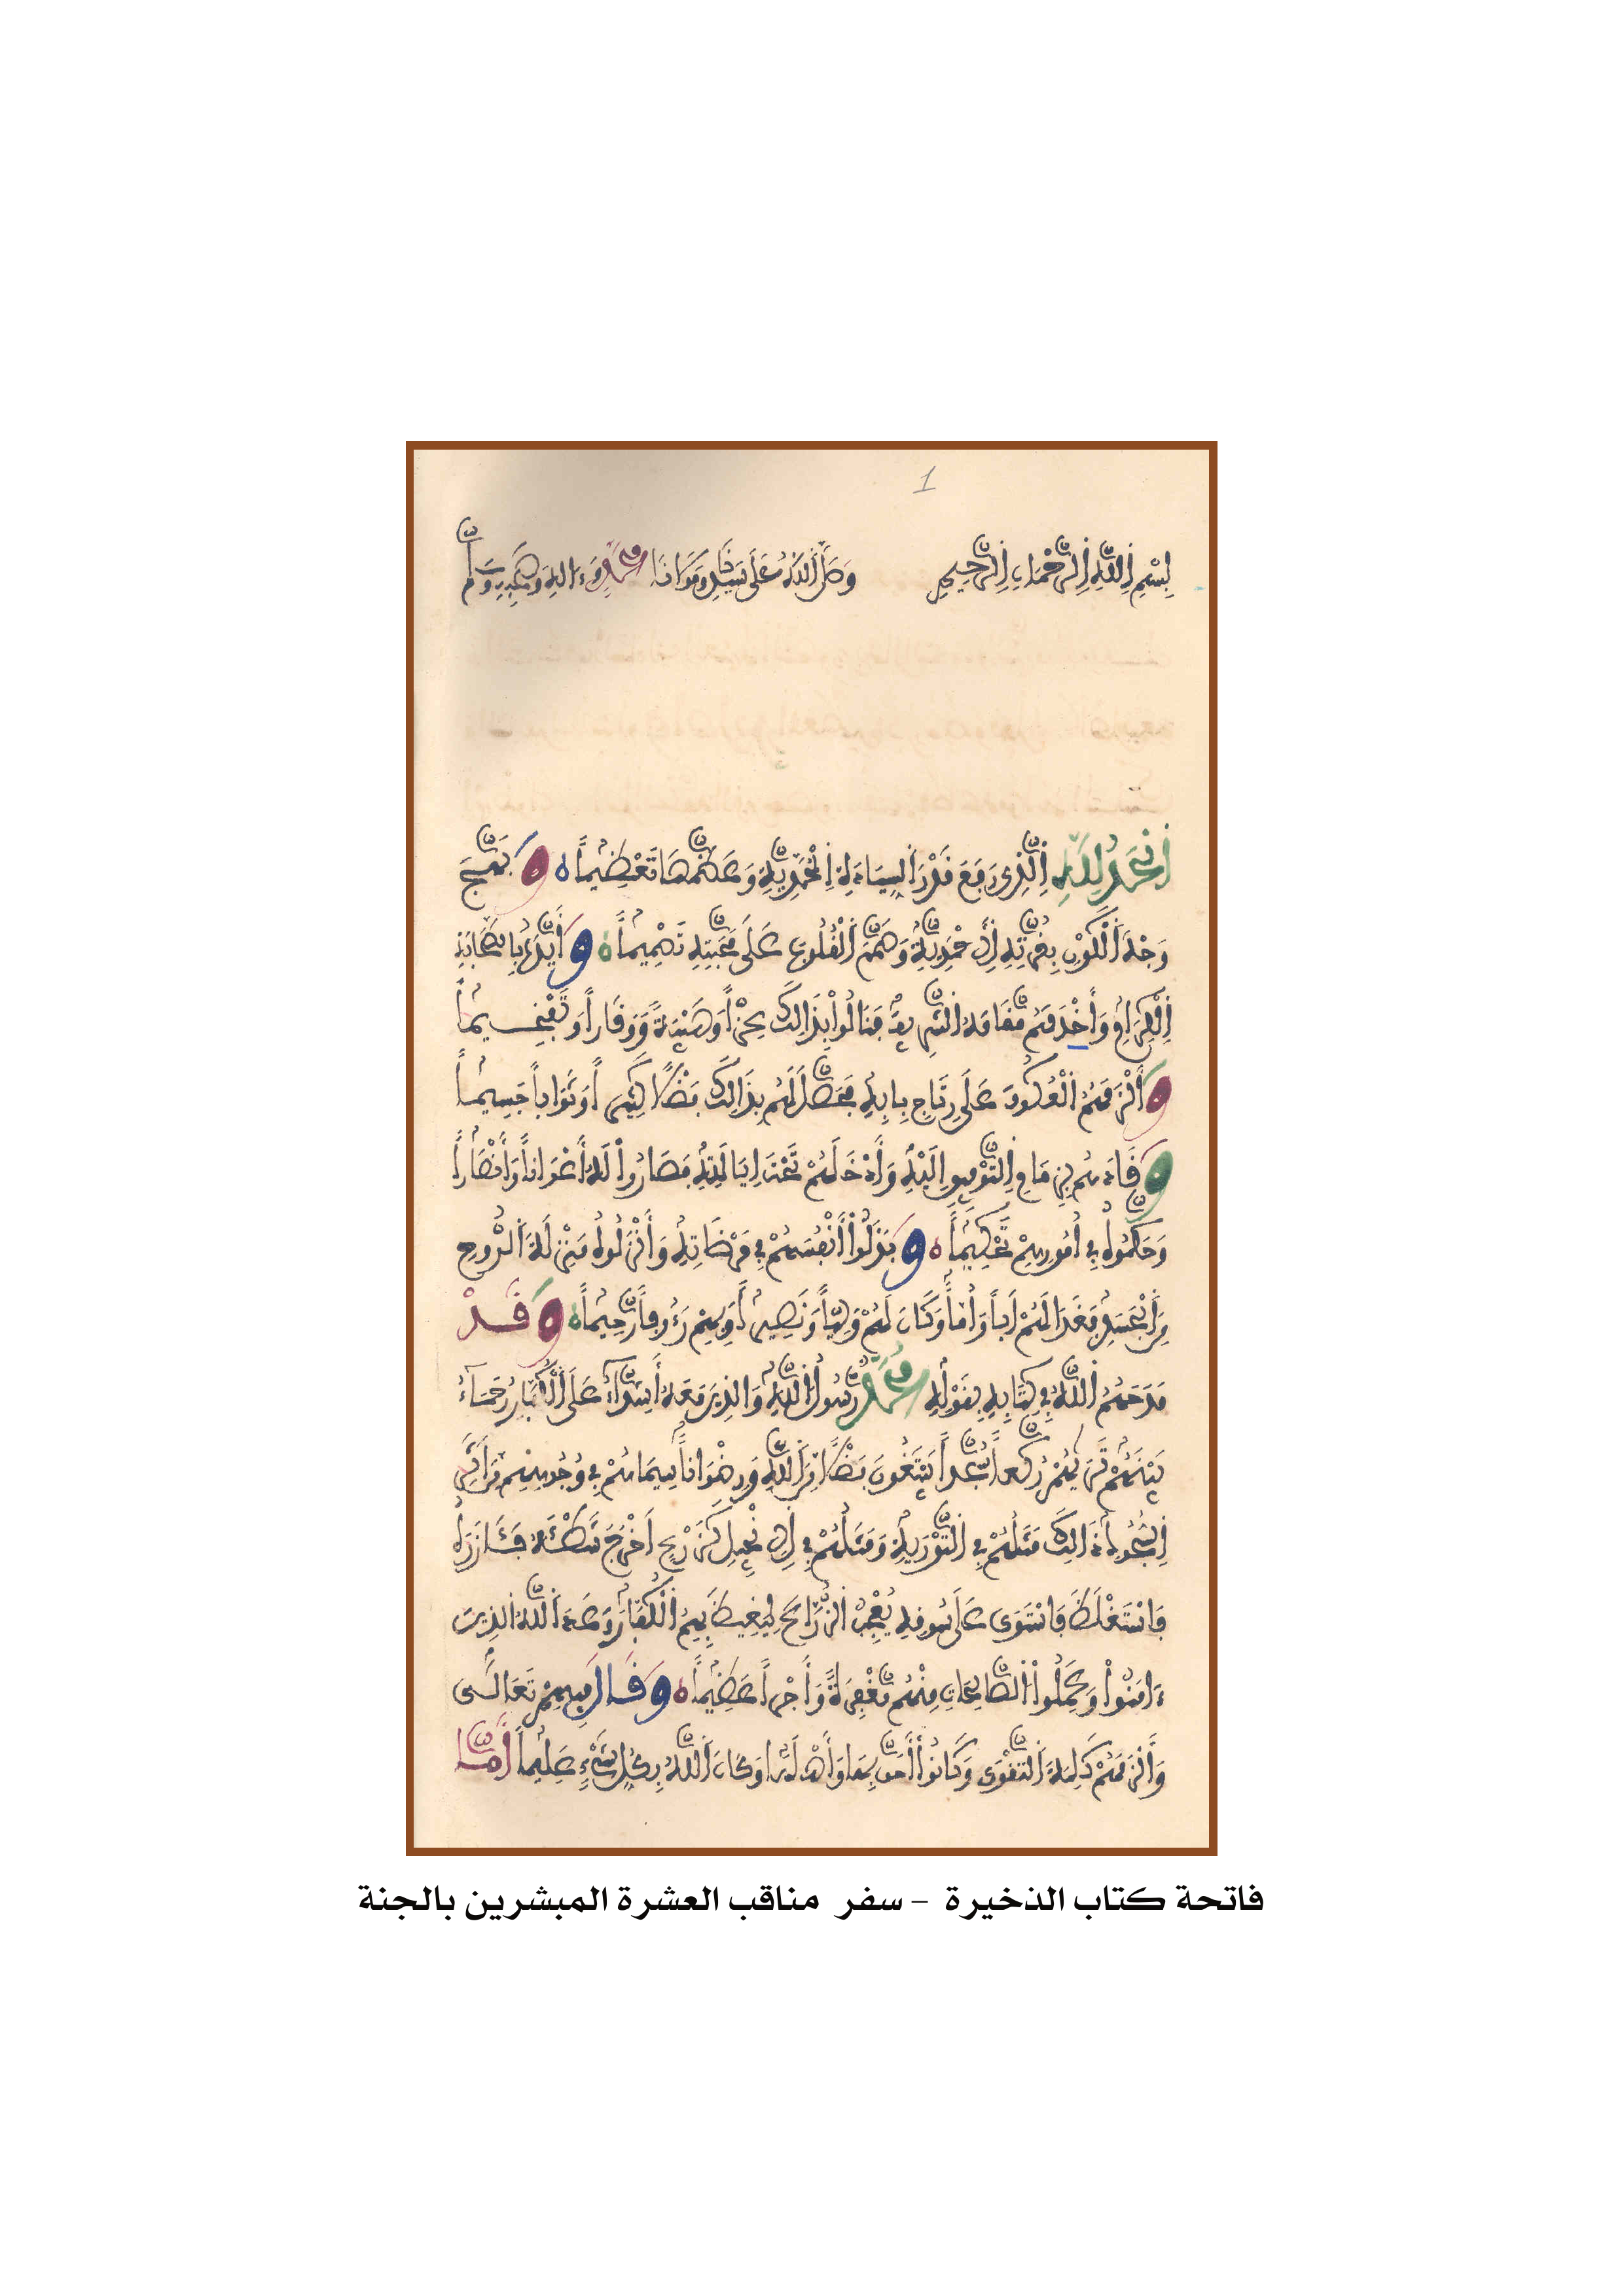 1
بِسْمِ اِللَّهِ اِلرَّحْمَانِ اِلرَّحِيمِ وَصَلَّى أَللَّهُ عَلَى سَيِّدِنَا وَمَوْلَانَا مُحَمَّدٍ وَءَالِهِ وَصَحْبِهِ وَسَلَّم
اَلْحَمْدُ لِلَّهِ اِلَّذِى رَفَعَ قَدْرَ اَلسِّيَادَةِ اِلْمُحَمَّدِيَّةِ وَعَظَّمَهَا تَعْظِيماً ه وَبَهَّجَ
وَجْهَ اَلْكَوْنِ بِغُرَّتِهِ اِلْأَحْمَدِيَّةِ وَهَمَّمَ اَلْقُلُوبَ عَلَى مَحَبَّتِهِ تَهْمِيماً ه وَأَيَّدَهُ بِاَصْحَابِهِ
اِلْكِرَامِ وَأَخْدَمَهُم مَّقَامَهُ اَلشَّرِيفَ فَنَالُواْ بِذَالِكَ عِزّاً وَهَيْبَةً وَوَقَاراً وَتَفْخِيماً
وَأَلْزَمَهُمُ اَلْعُكُوفَ عَلَى رِتَاجِ بَابِهِ فَحَصَلَ لَهُم بِذَالِكَ فَضْلاً كَثِيراً وَثَوَاباً جَسِيماً
وَقَادَهُم بِزِمَامِ اِلتَّوْفِيقِ اِلَيْهِ وَأَدْخَلَهُمْ تَحْتَ اِيَالَتِهِ فَصَارُواْ لَهُ أَعْوَاناً وَأَنْصَاراً
وَحَكَّمُوهُ فِي أُمُورِهِمْ تَحْكِيماً ه وَبَذَلُواْ أَنْفُسَهُمْ فِي مَرْضَاتِهِ وَأَنْزَلُوهُ مَنْزِلَةَ اَلرُّوحِ
مِنَ اَلْجَسَدِ فَغَدَا لَهُمْ أَباً وَأُمّاً وَكَانَ لَهُمْ وَلِيّاً وَنَصِيراً وَبِهِمْ رَءُوفاً رَّحِيماً ه وَقَدْ
مَدَحَهُمُ اَللَّهُ فِي كِتَابِهِ بِقَوْلِهِ مُحَمَّدٌ رَّسُولُ اَللَّهِ وَالَّذِينَ مَعَهُ أَشِدَّآءُ عَلَى اَلْكُفَّارِ رُحَمَآءُ
بَيْنَهُمْ تَرَيهُمْ رُكَّعاً سُجَّداً يَبْتَغُونَ فَضْلاً مِّنَ اَللَّهِ وَرِضْوَاناً سِيمَاهُمْ فِي وُجُوهِهِم مِّنَ اَثَرِ
اِلسُّجُودِ ذَالِكَ مَثَلُهُمْ فِي اَلتَّوْرَيةِ وَمَثَلُهُمْ فِي اِلْإِنْجِيلِ كَزَرْعٍ اَخْرَجَ شَطْئَهُ فَئَازَرَهُ
فَاسْتَغْلَظَ فَاسْتَوَى عَلَى سُوقِهِ يُعْجِبُ اَلزُّرَّاعَ لِيَغِيظَ بِهِمُ اَلْكُفَّارَ وَعَدَ اَللَّهُ اَلذِينَ
ءَامَنُواْ وَعَمِلُواْ اَلصَّالِحَاتِ مِنْهُم مَّغْفِرَةً وَأَجْراً عَظِيماً ه وَقَالَ فِيهِمْ تَعَالَى
وَأَلْزَمَهُمْ كَلِمَةَ اَلتَّقْوَى وَكَانُواْ أَحَقَّ بِهَا وَأَهْلَهَا وَكَانَ اَللَّهُ بِكُلِّ شَيْءٍ عَلِيماً أَمَّا
فاتحة كتاب الذخيرة - سفر مناقب العشرة المبشرين بالجنة